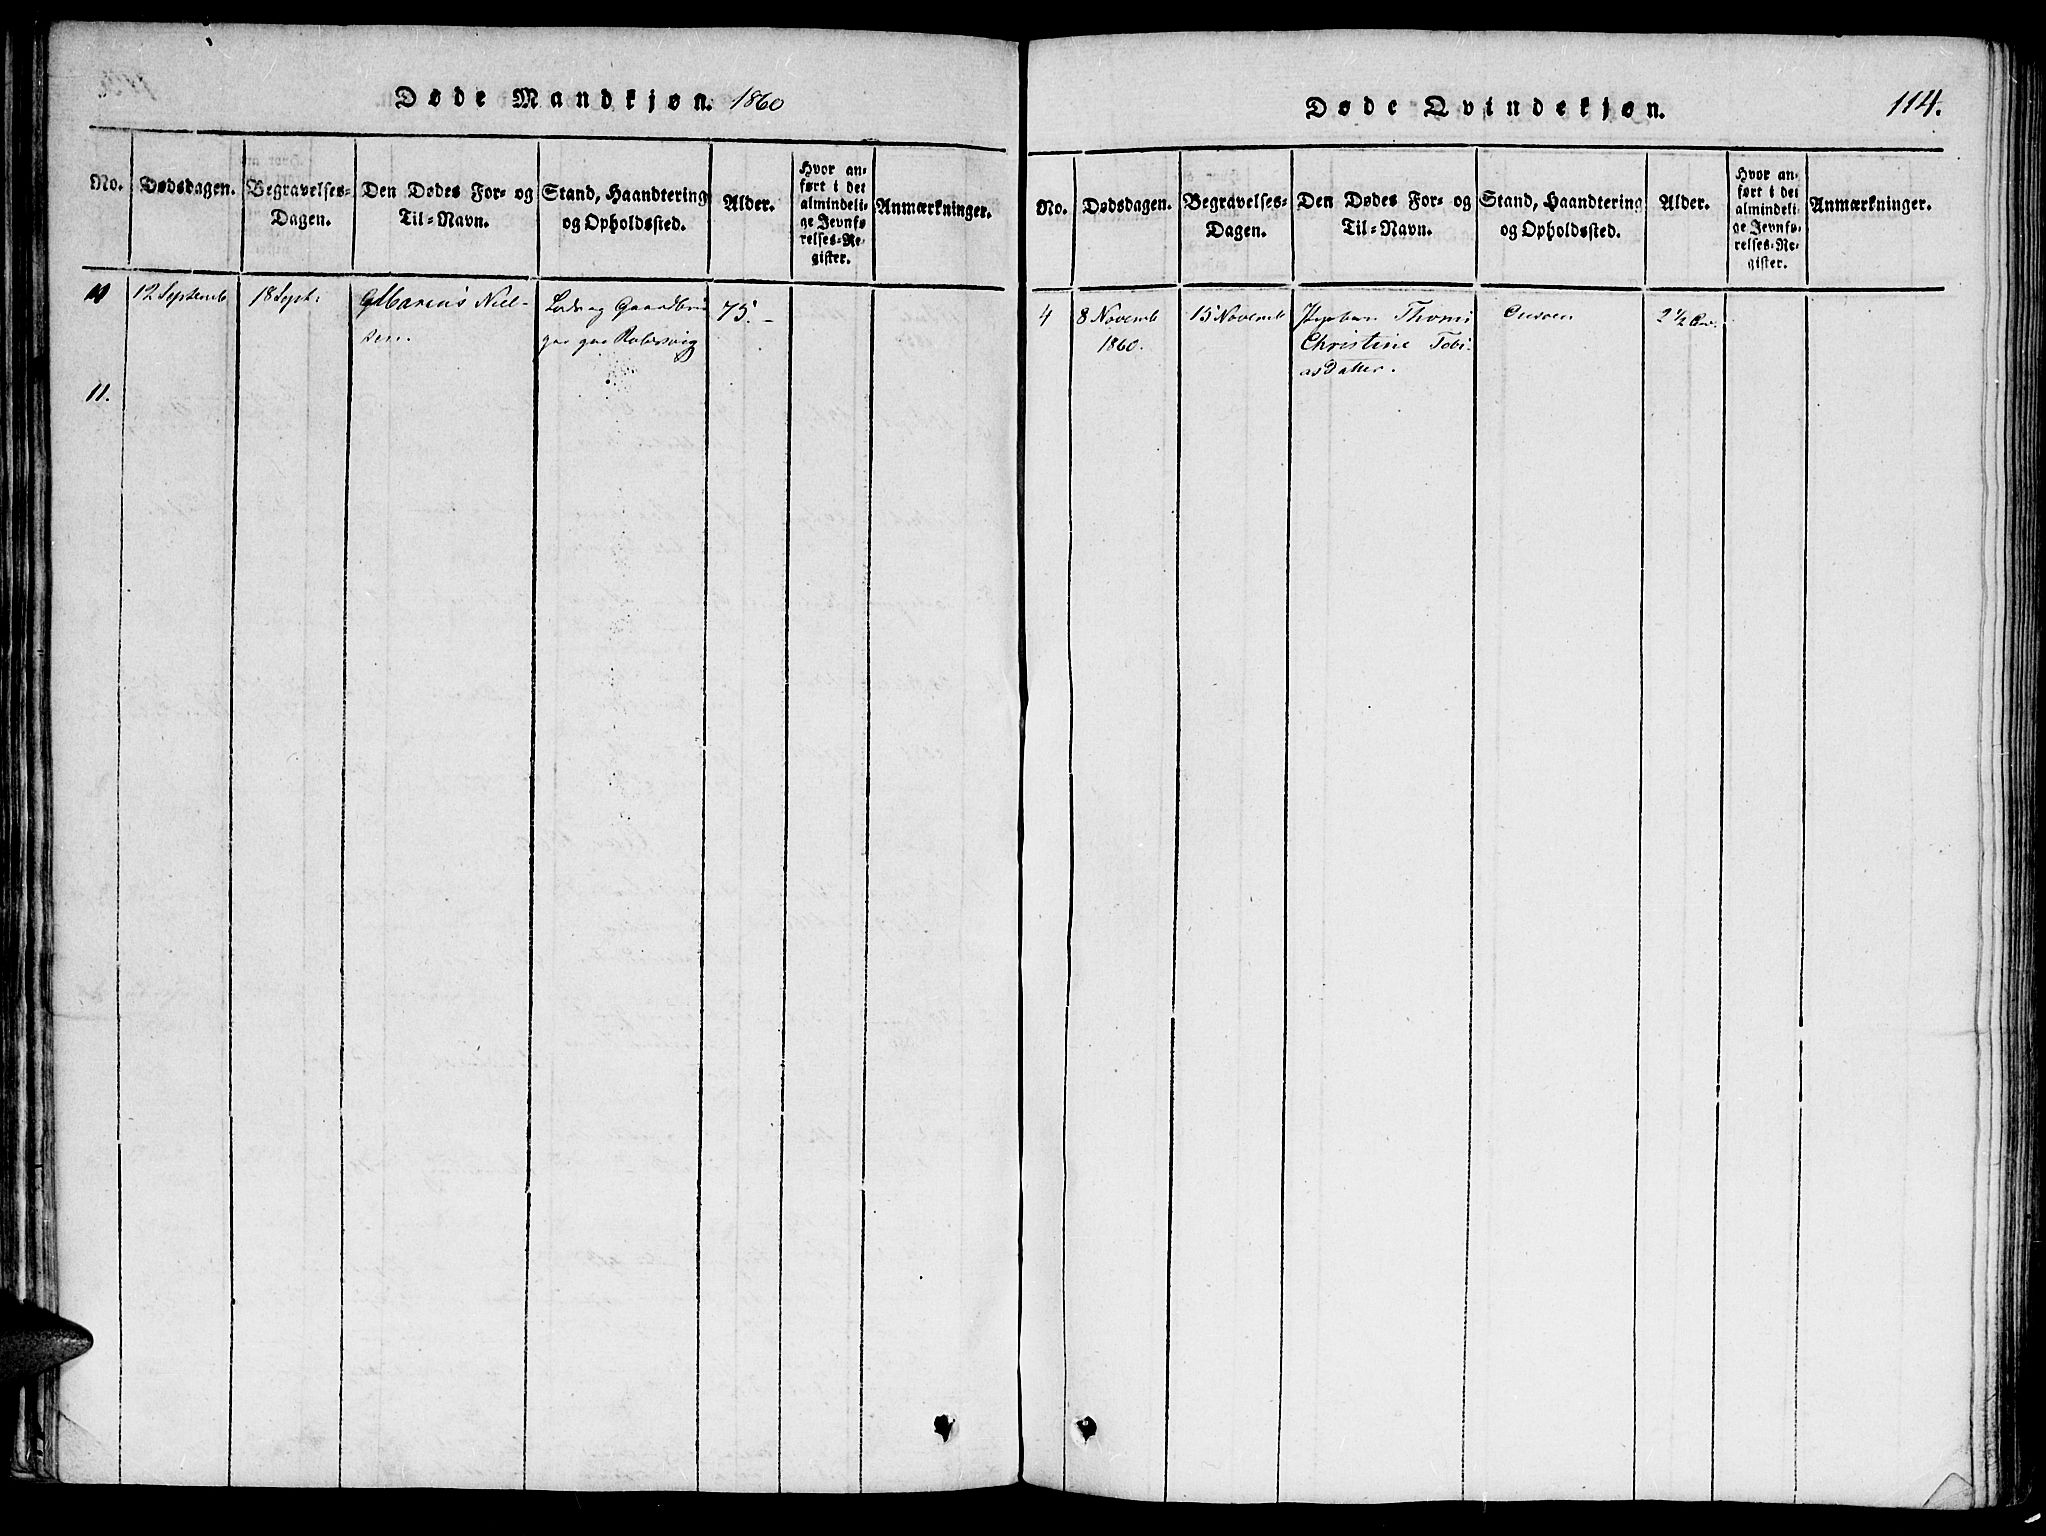 Døde Mandkjøn. 1860
No.
Dødsdagen.
Begravelses-
Dagen.
Den Dødes For- og
Til-Navn.
Stand, Haandtering
og Opholdssted.
Alder.
Hvor an-
ført i det
almindeli-
ge Jevnfø-
relses-Re-
gister.
Anmærkninger.
10
12 Septemb
18 Sept:
Marcus Niel-
sen.
og Gaardbru
paa
75.-
11.
Døde Qvindekjøn.
114.
No.
Dødsdagen.
Begravelses-
Dagen.
Den Dødes For- og
Til-Navn.
Stand, Haandtering
og Opholdssted.
Alder.
Hvor an-
ført i det
almindeli-
ge Jevnfø-
relses-Re-
gister.
Anmærkninger.
4
8 Novemb
1860.
15 Novemb
Thomi
Christine Tobi-
asdatter.
2 1/2